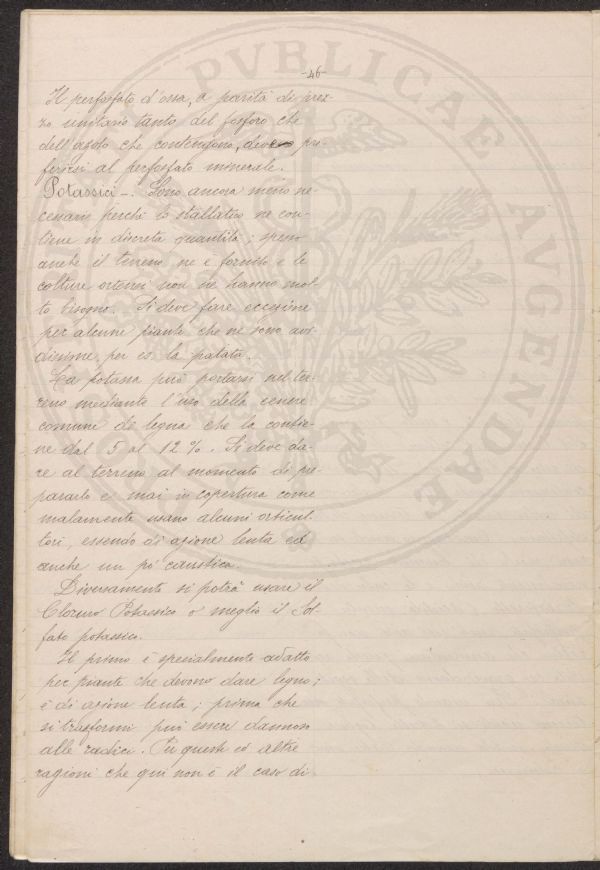 -46-
Il perfosfato d'ossa, a parità di prez-
zo unitario tanto del fosforo che
dell'azoto che contengono, deve pre-
ferirsi al perfosfato minerale.
Potassici -. Sono ancora meno ne-
cessari perchè lo stallatico ne con-
tiene in discreta quantità; spesso
anche il terreno ne è fornito e le
colture ortensi non ne hanno mol-
to bisogno. Si deve fare eccezione
per alcune piante che ne sono avi-
dissime, per es. la patata.
La potassa può portarsi nel ter-
reno mediante l'uso della cenere
comune di legna che la contie-
ne dal 5 al 12%. Si deve da-
re al terreno al momento di pre-
pararlo e mai in copertura come
malamente usano alcuni orticul-
tori, essendo di azione lenta ed
anche un pò caustica.
Diversamente si potrà usare il
Cloruro Potassico o meglio il Sol-
fato potassico.
Il primo è specialmente adatto
per piante che devono dare legno;
è di azione lenta; prima che
si trasformi può essere dannoso
alle radici. Per queste ed altre
ragioni che qui non è il caso di
PVBLICAE AVGENDAE